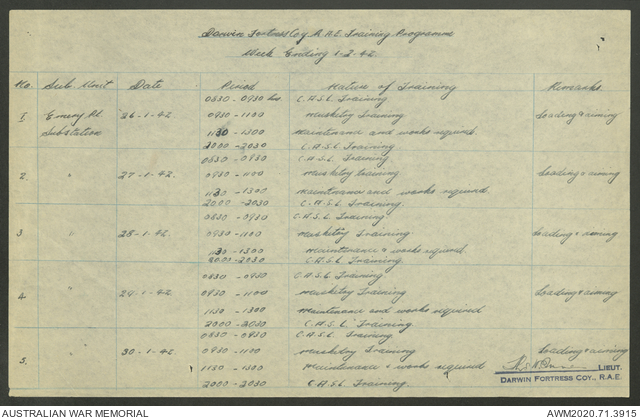 Darwin Fortress Coy R.A.E. Training Programme
Week Ending 1-2-42.
No. Sub. Unit Date Period Nature of Training Remarks
0830 - 0930 hrs C.A.S.L. Training
1. Emery Pt 26-1-42 0930 - 1100 Musketry Training Loading & aiming
Substation 1130 - 1300 Maintenance and works required
2000 - 2030 C.A.S.L. Training
0830 - 0930 C.A.S.L. Training
2. " 27-1-42. 0930 - 1100 Musketry Training Loading & aiming
1130 - 1300 Maintenance and works required.
2000 - 2030 C.A.S.L. Training
0830 - 0930 C.A.S.L. Training
3 " 28-1-42. 0930 - 1100 Musketry Training Loading & aiming
1130 - 1300 Maintenance & works required
2000 - 2030 C.A.S.L. Training
0830 - 0930 C.A.S.L. Training
4 " 29-1-42. 0930 - 1100 Musketry Training Loading & aiming
1130 - 1300 Maintenance and works required
2000 - 2030 C.A.S.L. Training
0830 - 0930 C.A.S.L. Training
5. " 30-1-42. 0930 - 1100 Musketry Training Loading & aiming
1130 - 1300 Maintenance & works required
LIEUT.
2000 - 2030 C.A.S.L. Training.
DARWIN FORTRESS COY., R.A.E.
AUSTRALIAN WAR MEMORIAL AWM2020.71.3915